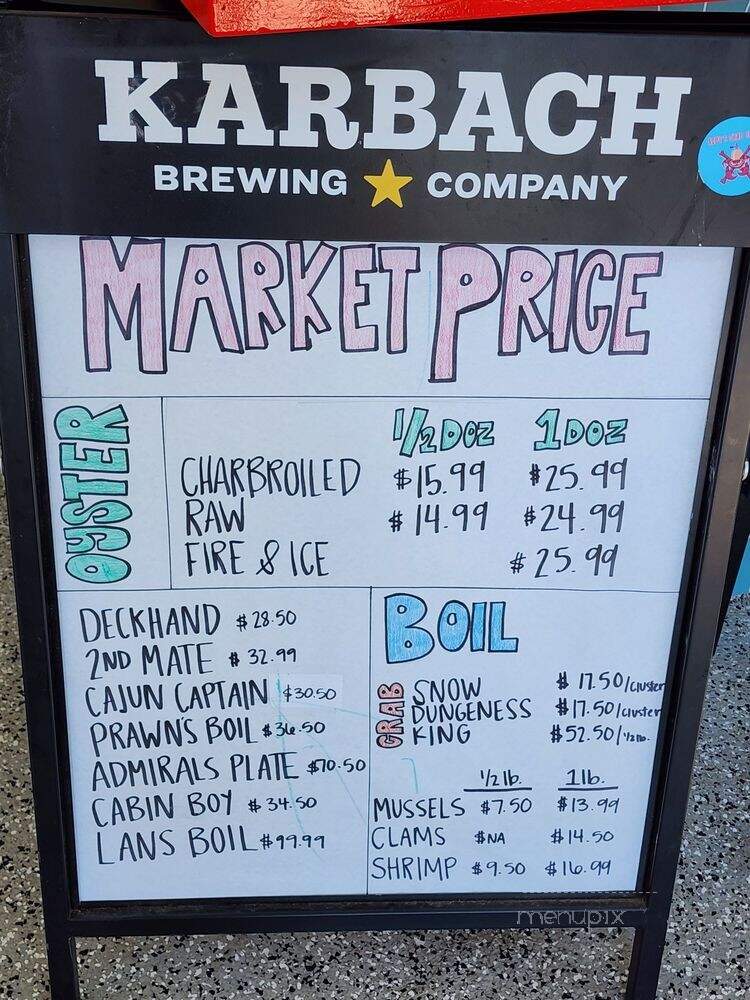 KARBACH
BREWING ★ COMPANY
MARKET PRICE
OYSTER
1/2 DOZ 1 DOZ
CHARBROILED $15.99 $25.99
RAW $14.99 $24.99
FIRE & ICE $25.99
DECKHAND $28.50
2ND MATE $32.99
CAJUN CAPTAIN $30.50
PRAWN'S BOIL $36.50
ADMIRALS PLATE $70.50
CABIN BOY $34.50
LANS BOIL $99.99
BOIL
CRAB
SNOW $17.50/cluster
DUNGENESS $17.50/cluster
KING $52.50/1/2lb.
1/2 lb. 1 lb.
MUSSELS $7.50 $13.99
CLAMS $NA $14.50
SHRIMP $9.50 $16.99
menupix